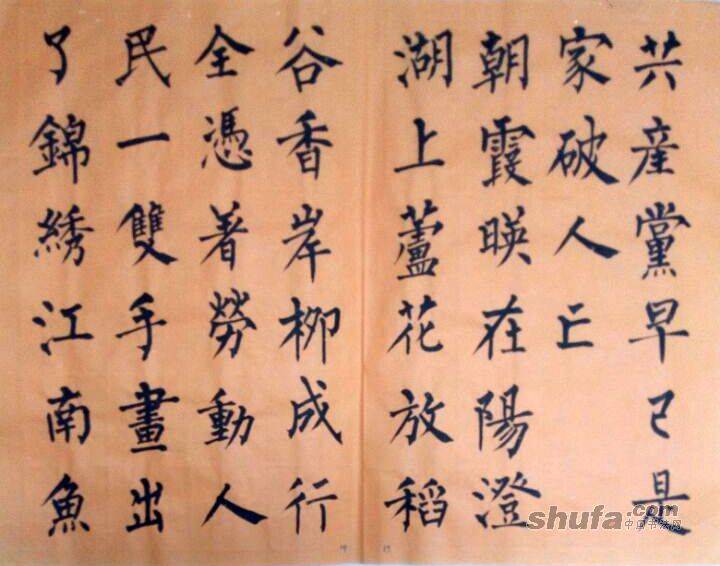 共産黨早已是
家破人亡
朝霞暎在陽澄
湖上蘆花放稻
谷香岸柳成行
全憑著勞動人
民一雙手畫出
了錦綉江南魚
shufa.com
中国书法网